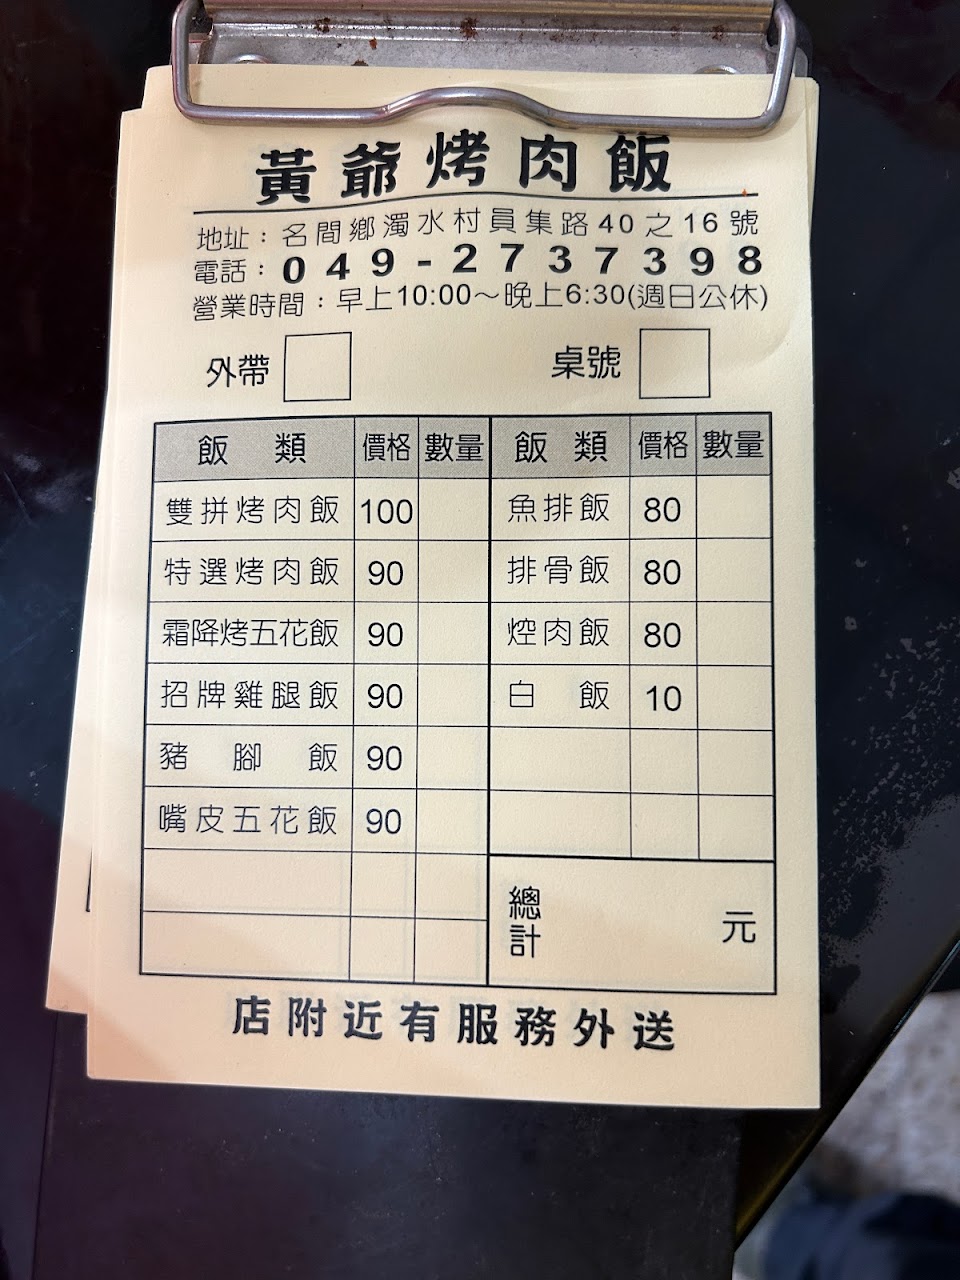 黃爺烤肉飯
地址：名間鄉濁水村員集路40之16號
電話：049-2737398
營業時間：早上10:00～晚上6:30(週日公休)
外帶 桌號
飯類 價格 數量 飯類 價格 數量
雙拼烤肉飯 100 魚排飯 80
特選烤肉飯 90 排骨飯 80
霜降烤五花飯 90 焢肉飯 80
招牌雞腿飯 90 白飯 10
豬腳飯 90
嘴皮五花飯 90
總計 元
店附近有服務外送